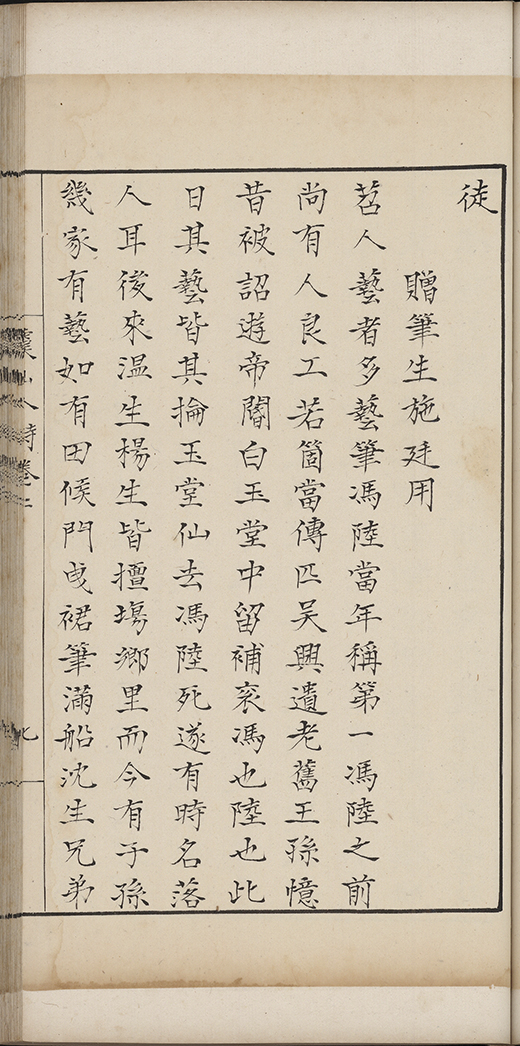 徒
贈筆生施廷用
苕人藝者多藝筆馮陸當年稱第一馮陸之前
尚有人良工若箇當傳匹吳興遺老舊王孫憶
昔被詔遊帝閽白玉堂中留補衮馮也陸也此
日其藝皆其掄玉堂仙去馮陸死遂有時名落
人耳後來温生楊生皆擅塲鄉里而今有子孫
幾家有藝如有田候門曳裾筆滿船沈生兄弟
山人詩卷二